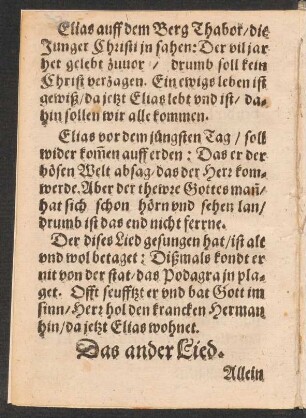 Elias auff dem Berg Thabor/die
Junger Christi in sahen: Der vil jar
her gelebt zuuor / drumb soll kein
Christ verzagen. Ein ewigs leben ist
gewiß/da jetzt Elias lebt vnd ist/ da-
hin sollen wir alle kommen.
Elias vor dem jüngsten Tag / soll
wider kom̃en auff erden: Das er der
bösen Welt absag/das der Herr kom-
werde. Aber der thewre Gottes mañ/
hat sich schon hörn vnd sehen lan/
drumb ist das end nicht ferrne.
Der dises Lied gesungen hat/ist alt
vnd wol betaget: Dißmals kondt er
nit von der stat/das Podagra jn pla-
get. Offt seufftzt er vnd bat Gott im
sinn/Herr hol den krancken Herman
hin/da jetzt Elias wohnet.
Das ander Lied.
Allein